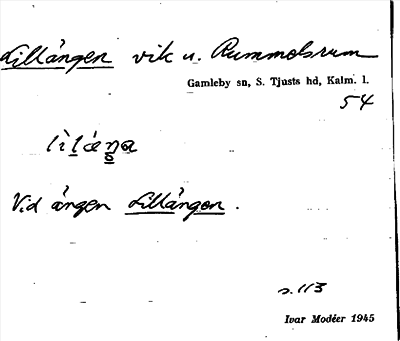 Lillängen vik u. Rummelsrum
Gamleby sn, S. Tjusts hd, Kalm. l.
54
Vid ängen Lillängen.
s. 113
Ivar Modéer 1945